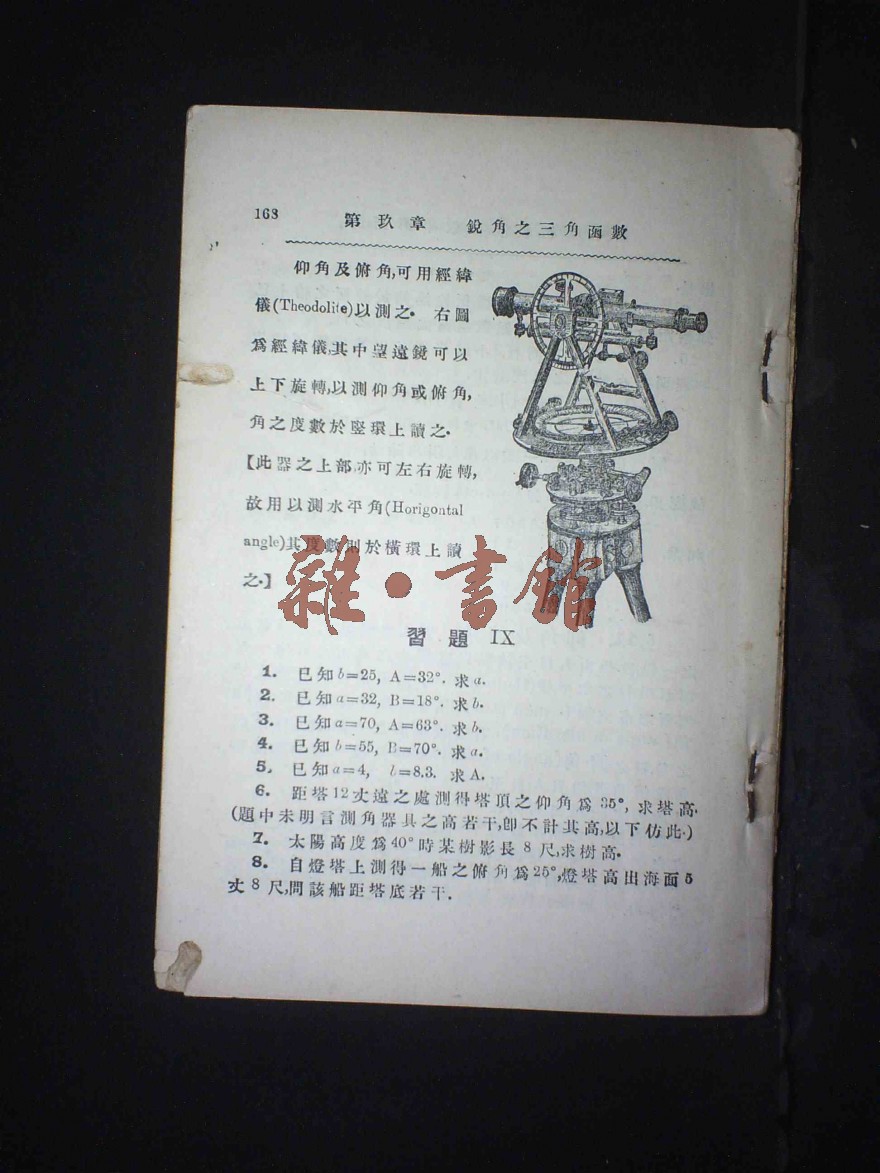 168
第玖章 銳角之三角函數
仰角及俯角,可用經緯
儀(Theodolite)以測之. 右圖
爲經緯儀,其中望遠鏡可以
上下旋轉,以測仰角或俯角,
角之度數於竪環上讀之.
【此器之上部,亦可左右旋轉,
故用以測水平角(Horigontal
angle)其度數則於橫環上讀
之.】
雜·書館
習題 IX
1. 已知b=25, A=32°. 求a.
2. 已知a=32, B=18°. 求b.
3. 已知a=70, A=63°. 求b.
4. 已知b=55, B=70°. 求a.
5. 已知a=4, b=8.3. 求A.
6. 距塔12丈遠之處測得塔頂之仰角爲35°, 求塔高.
(題中未明言測角器具之高若干,卽不計其高,以下仿此.)
7. 太陽高度爲40°時某樹影長8尺,求樹高.
8. 自燈塔上測得一船之俯角爲25°,燈塔高出海面5
丈8尺,問該船距塔底若干.